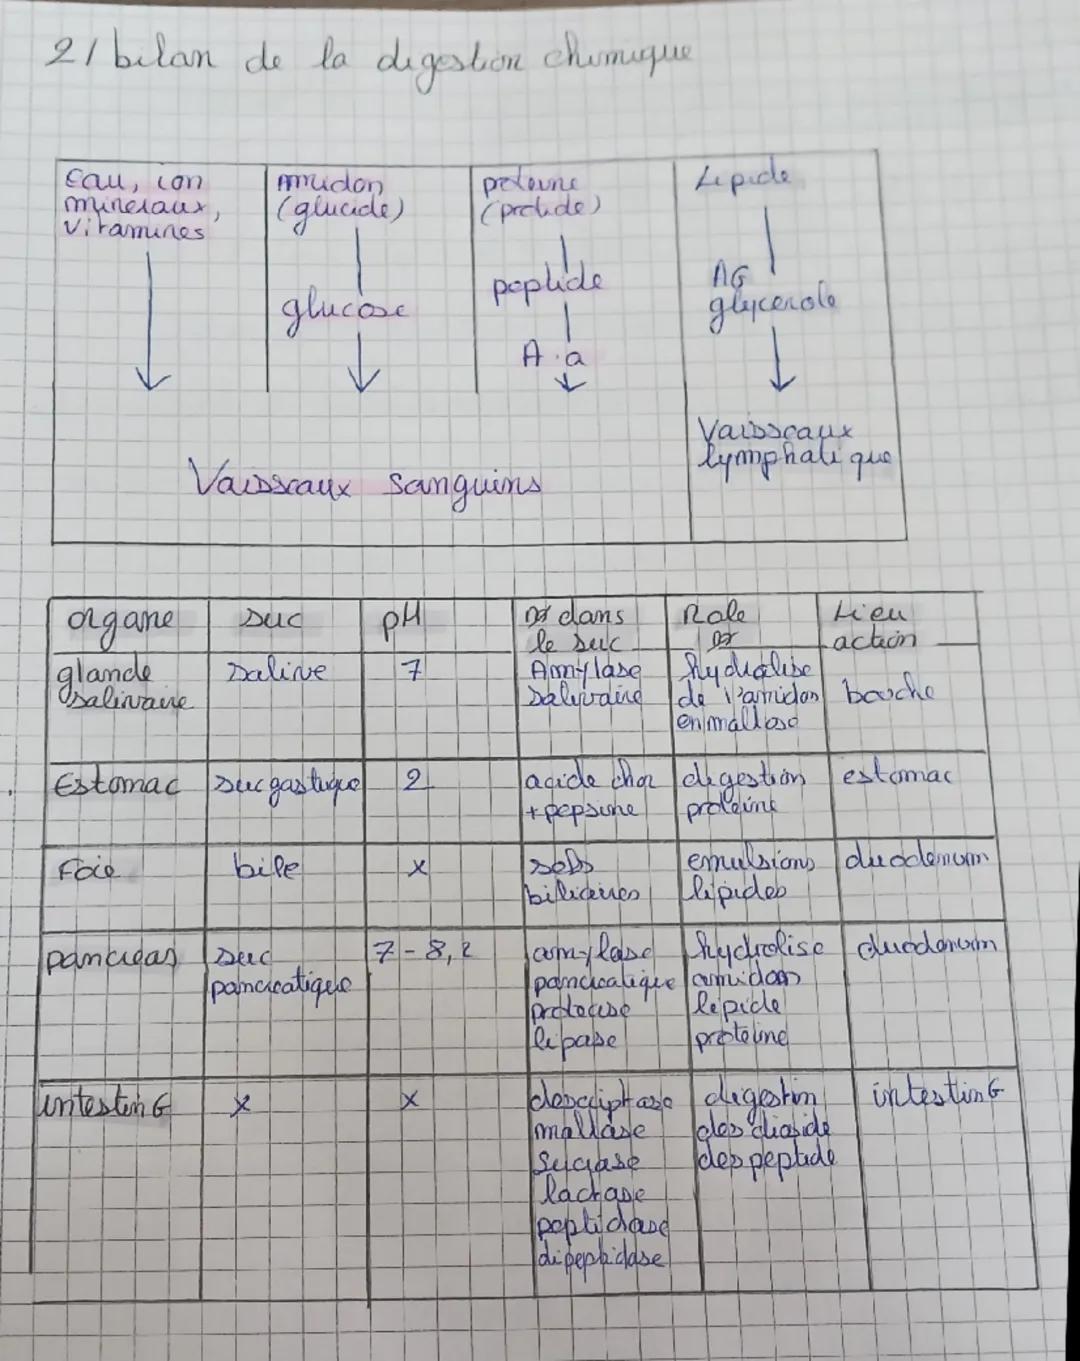 2/ bilan de la digestion chimique
eau, ion
mineraux,
vitamines
amidon
(glucide)
glucose
proteine
(protide)
peptide
A.a
Lipide
AG
glycerole
Vaisseaux sanguins
Vaisseaux
lymphatique
organe
suc
pH
dans
le suc
Role
Lieu
action
glande
salivaire
salive
7
Amylase
salivaire
hydrolise
de l'amidon
en maltose
bouche
Estomac
suc gastrique
2
acide chor
+ pepsine
digestion
proteine
estomac
Foie
bile
x
sels
biliaires
emulsions
lipides
duodenum
pancreas
suc
pancreatique
7-8,2
amylase
pancreatique
protease
lipase
hydrolise
amidon
lipide
proteine
duodenum
intestin G
x
x
maltase
sucrase
lactase
peptidase
dipeptidase
digestion
des dioside
des peptide
intestin G